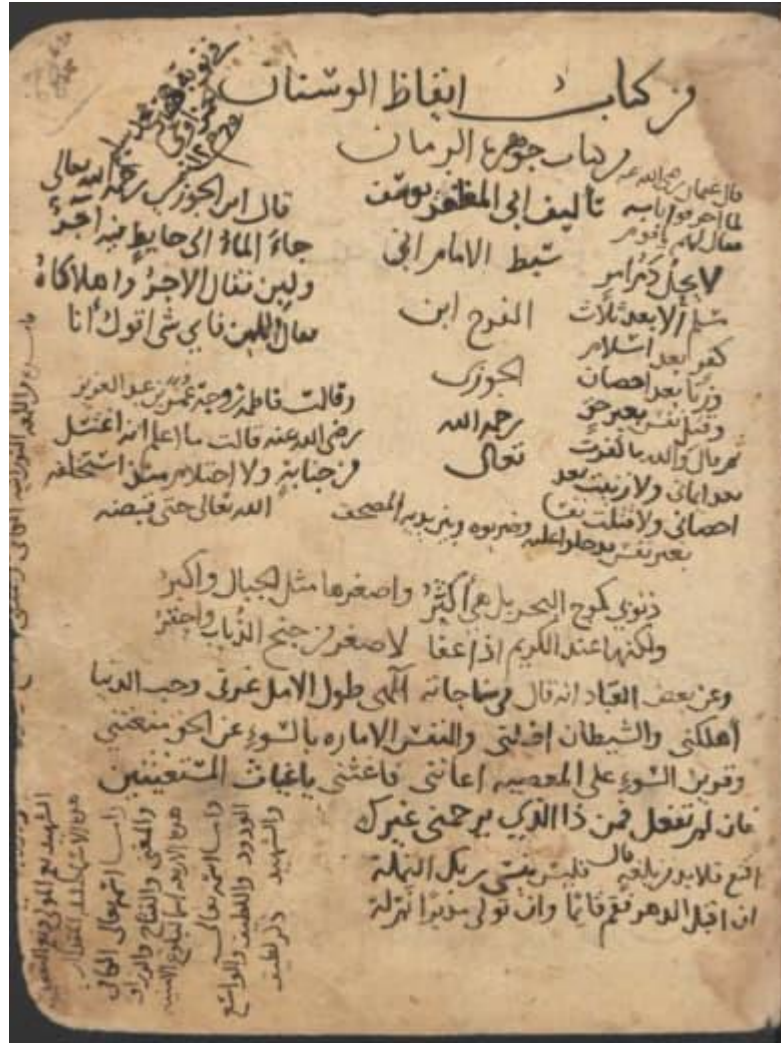 من كتاب ايقاظ الوسنان
من كتاب جوهرة الزمان
تأليف ابي المظفر يوسف
سبط الامام ابي
الفرج ابن
الجوزي
رحمه الله
تعالى
قال عثمان رضي الله عنه
لما
فقال لهم يا قوم
لا يحل دم امرء
مسلم الا بعد ثلاث
كفر بعد اسلام
وزنا بعد احصان
وقتل نفس بغير حق
ثم قال والله ما كفرت
بعد ايماني ولا زنيت بعد
احصاني ولا قتلت نفسا
بغير نفس فدخلوا عليه وضربوه وبين يديه المصحف
قال ابن الجوزي رحمه الله تعالى
جاء الماء الى حايط فيه آجر
ولبن فقال الاجر واهلاكاه
فقال اللبن فاي شي اقول أنا
وقالت فاطمة زوجة عمر بن عبد العزيز
رضي الله عنه قالت ما اعلم انه اغتسل
من جنابة ولا احتلام منذ استخلفه
الله تعالى حتى قبضه
ذنوبي كموج البحر بل هي أكثر واصغرها مثل الجبال واكبر
ولكنها عند الكريم اذا عفا لاصغر من جنح الذباب واحقر
وعن بعض العباد انه قال في مناجاته الهي طول الامل غرني وحب الدنيا
أهلكني والشيطان اضلني والنفس الاماره بالسوء عن الحق منعتني
وقرين السوء على المعصيه اعانني فاغثني ياغياث المستغيثين
فان لم تفعل فمن ذا الذي يرحمني غيرك
اقنع فلا بد من بلغه قال فليس ينسى ربك النملة
ان اقبل الدهر فقم قايما وان تولى مدبرا نم له
والشهيد
الودود واللطيف والواسع
واما اسمه تعالى
هذه الاربعه اسما
والمغني والفتاح والرزاق
واما اسمه تعالى الكافي